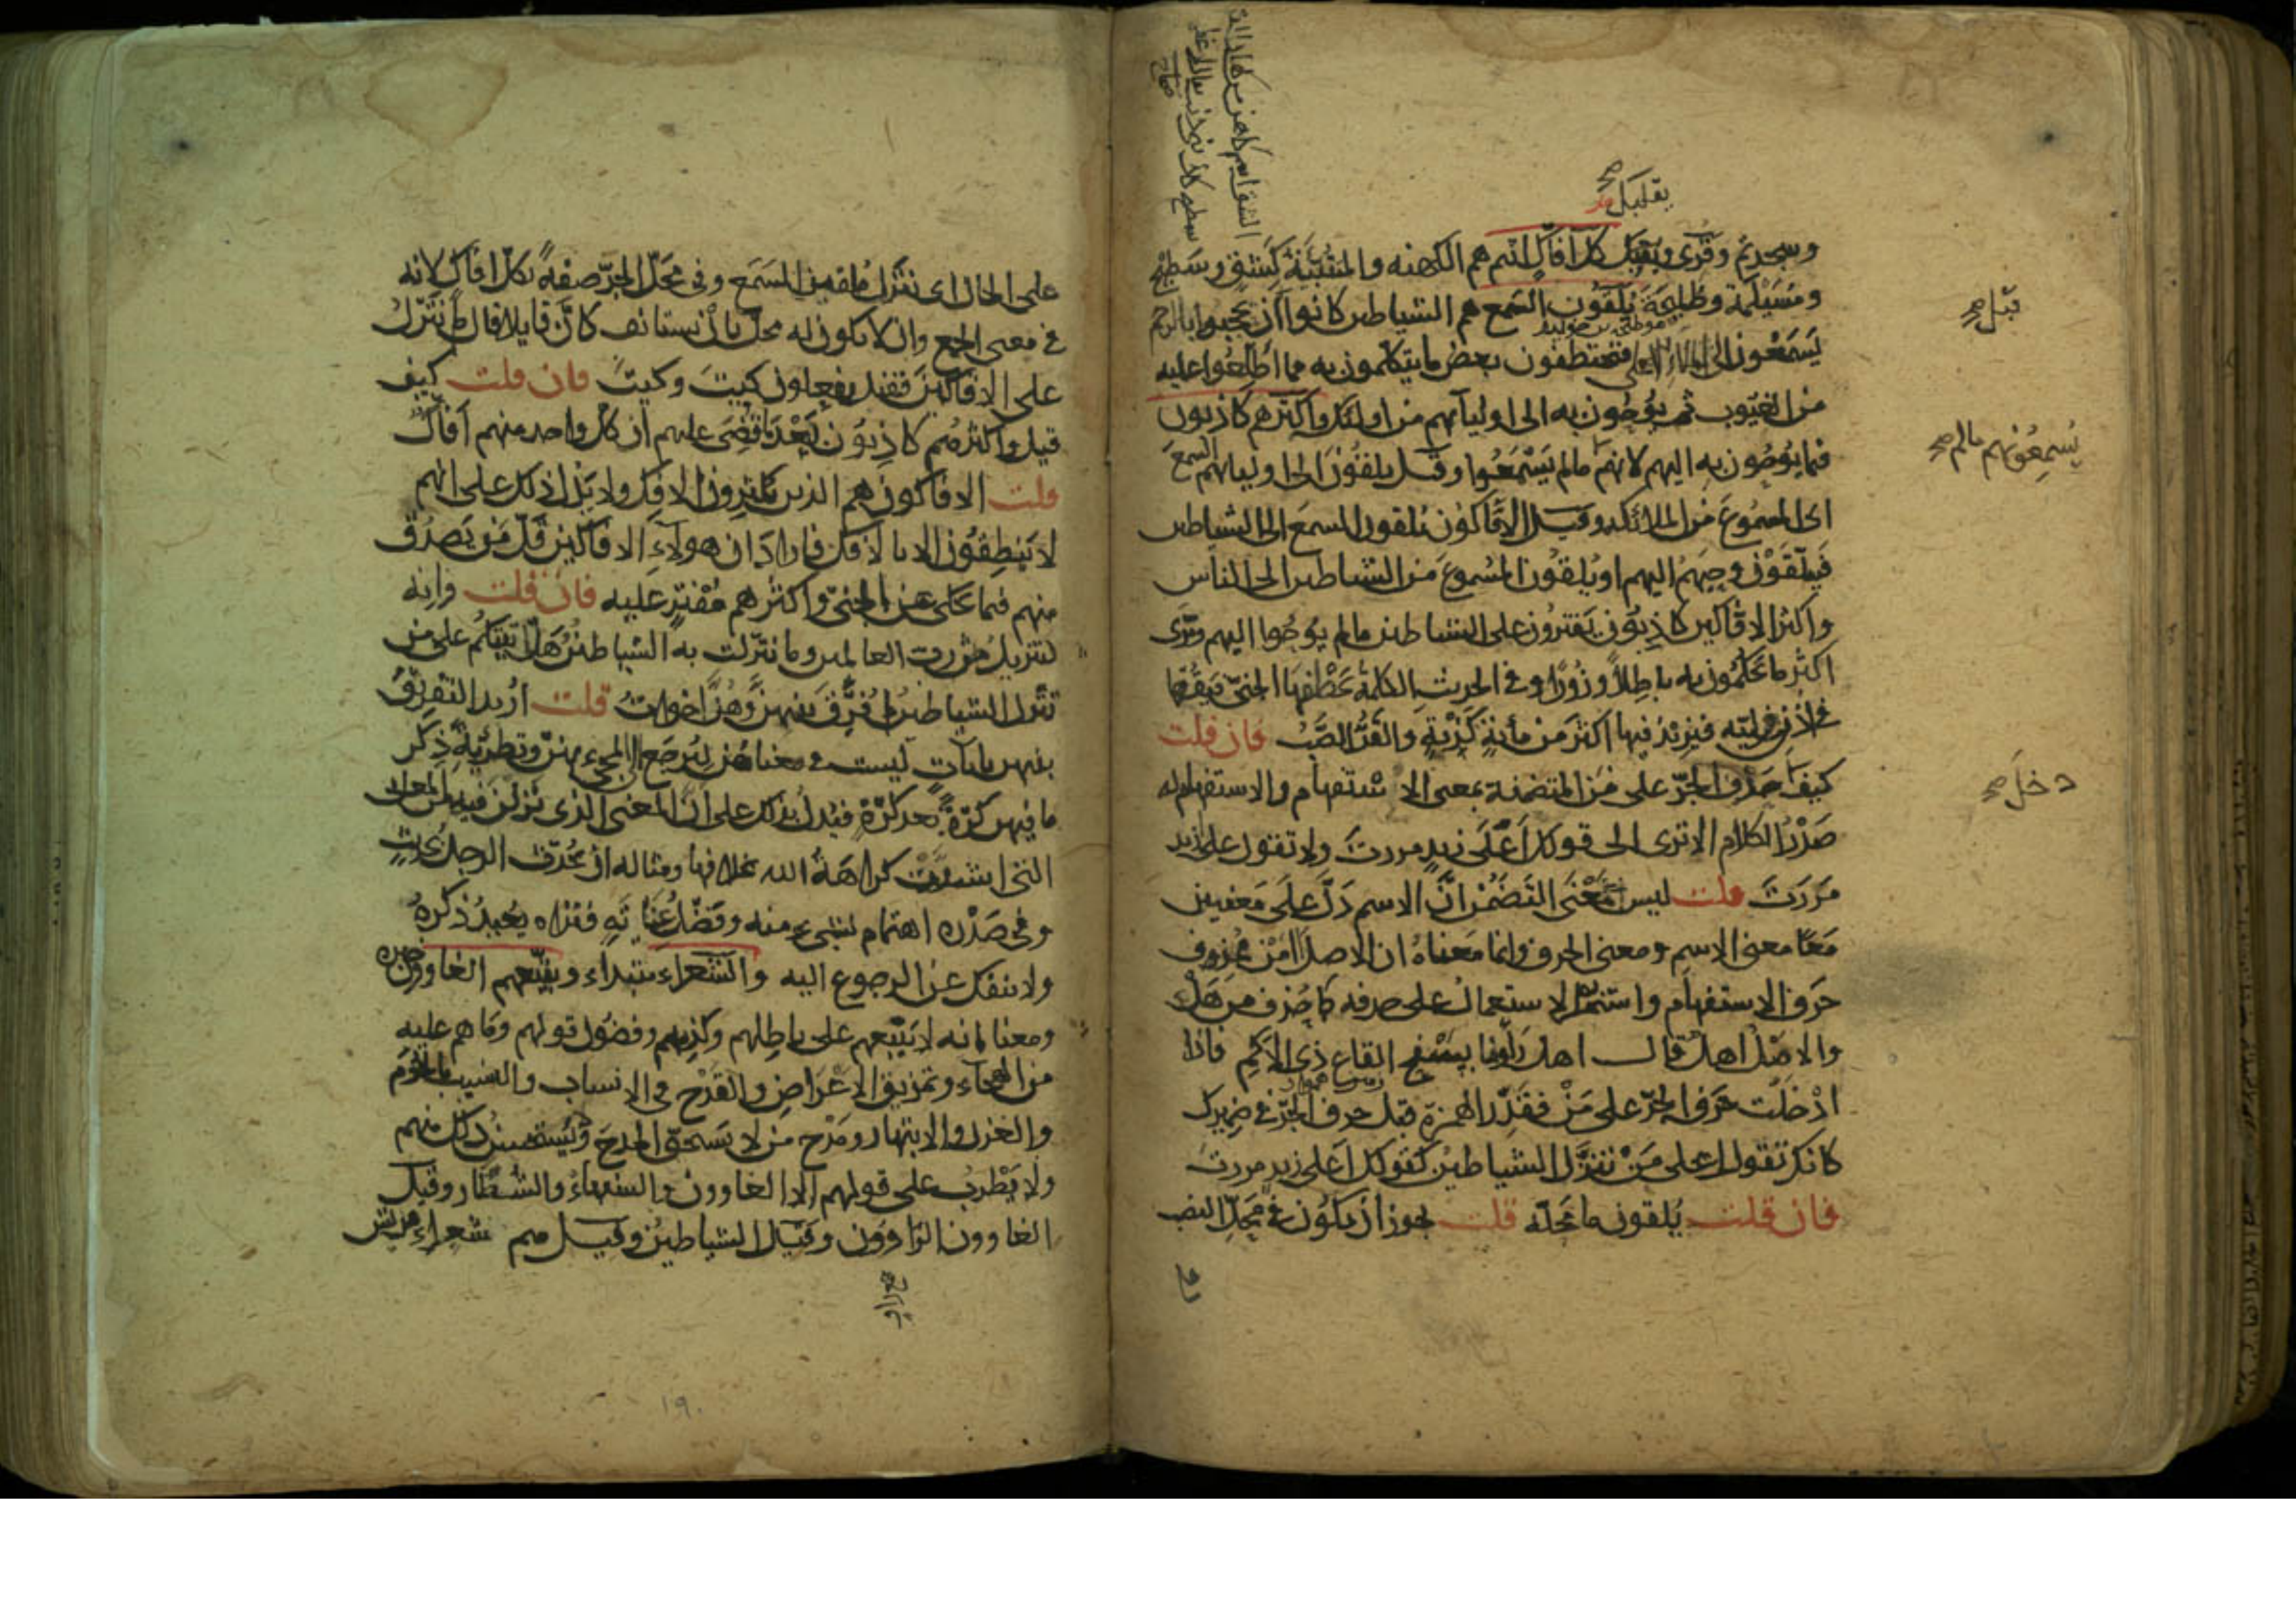 يقلبك صح
وسجديم وقرئ ويقلبك كل أفاك أثيم هم الكهنة والمتنبئة كشق وسطيح
ومسيلمة وطليحة يلقون السمع هم الشياطين كانوا قبل أن يحجبوا بالرجم
يسمعون إلى الملاء الأعلى فيختطفون بعض ما يتكلمون به مما أطلعوا عليه
من الغيوب ثم يوحون به إلى أوليائهم من أولئك وأكثرهم كاذبون
فيما يوحون به إليهم لأنهم ما لم يسمعوا وقيل يلقون إلى أوليائهم السمع
أي المسموع من الملائكة وقيل الأفاكون يلقون السمع إلى الشياطين
فيتلقون وحيهم إليهم أو يلقون المسموع من الشياطين إلى الناس
وأكثر الأفاكين كاذبون يفترون على الشياطين ما لم يوحوا إليهم وترى
أكثر ما يحكمون به باطلا وزورا وفي الحديث الكلمة يخطفها الجني فيقرها
في أذن وليه فيزيد فيها أكثر من مائة كذبة والقر الصب فان قلت
كيف حرف الجر على من المتضمنة بمعنى الاستفهام والاستفهام له
صدر الكلام الا ترى إلى قولك أعلى زيد مررت ولا تقول على أزيد
مررت قلت ليس معنى التضمن أن الاسم دل على معنيين
معا معنى الاسم ومعنى الحرف وانما معناه ان الاصل أمن فحذف
حرف الاستفهام واستمر الاستعمال على حذفه كما حذف من هل
والاصل اهل قال اهل رأونا بسفح القاع ذي الاكم فاذا
ادخلت حرف الجر على من فقدر الهمزة قبل حرف الجر في ضميرك
كانك تقول اعلى من تنزل الشياطين كقولك أعلى زيد مررت
فان قلت يلقون ما محله قلت يجوز أن يكون في محل النصب
قبل صح
يسمعونهم مالم صح
دخل صح
على الحال اي تنزل ملقين السمع وفي محل الجر صفة لكل افاك لانه
في معنى الجمع وان لا يكون له محل بان يستانف كان قايلا قال لم تنزل
على الافاكين فقيل يفعلون كيت وكيت فان قلت كيف
قيل واكثرهم كاذبون بعد ما قضي عليهم ان كل واحد منهم افاك
قلت الافاكون هم الذين يكثرون الافك ولا يدل ذلك على انهم
لا ينطقون الا بالافك فاراد ان هولاء الافاكين قل من يصدق
منهم فيما يحكى عن الجني واكثرهم مفتر عليه فان قلت وانه
لتنزيل رب العالمين وما تنزلت به الشياطين هل انبئكم على من
تنزل الشياطين لم فرق بينهن وهن اخوات قلت اريد التفريق
بينهن بايات ليست في معناهن ليرجع الى المجيء بهن وتطرية ذكر
ما فيهن كرة بعد كرة فيدل بذلك على ان المعنى الذي نزلن فيه من المعاني
التي اشتدت كراهة الله لخلافها ومثاله ان يحدث الرجل بحديث
وفي صدره اهتمام لشيء منه وفضل عناية فتراه يعيد ذكره
ولا ينفك عن الرجوع اليه والشعراء مبتداء ويتبعهم الغاوون خبره
ومعناه انه لا يتبعهم على باطلهم وكذبهم وفضول قولهم وما هم عليه
من الهجاء وتمزيق الاعراض والقدح في الانساب والنسيب بالحرم
والغزل والابتهار ومدح من لا يستحق المدح ويستحسن ذلك منهم
ولا يطرب على قولهم الا الغاوون والسفهاء والشطار وقيل
الغاوون الراوون وقيل الشياطين وقيل هم شعراء قريش
جمع راو
١٩٠